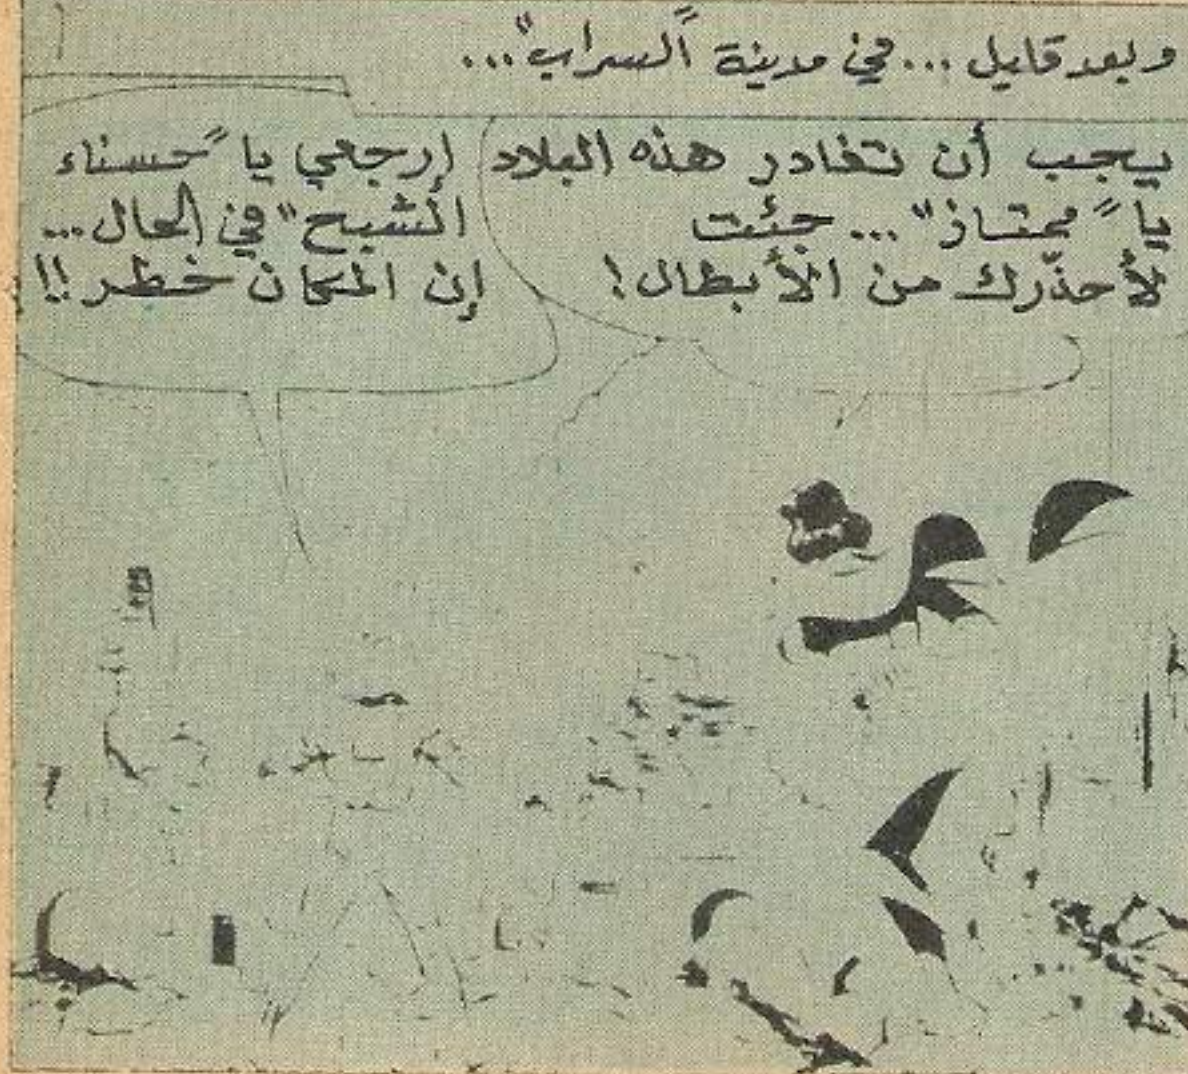 وبعد قليل ... في مدينة "السراب" ...
يجب أن تغادر هذه البلاد
يا "ممتاز" ... جئت
لأحذّرك من الأبطال!
إرجعي يا "حسناء
الشبح" في الحال ...
إن المكان خطر!!